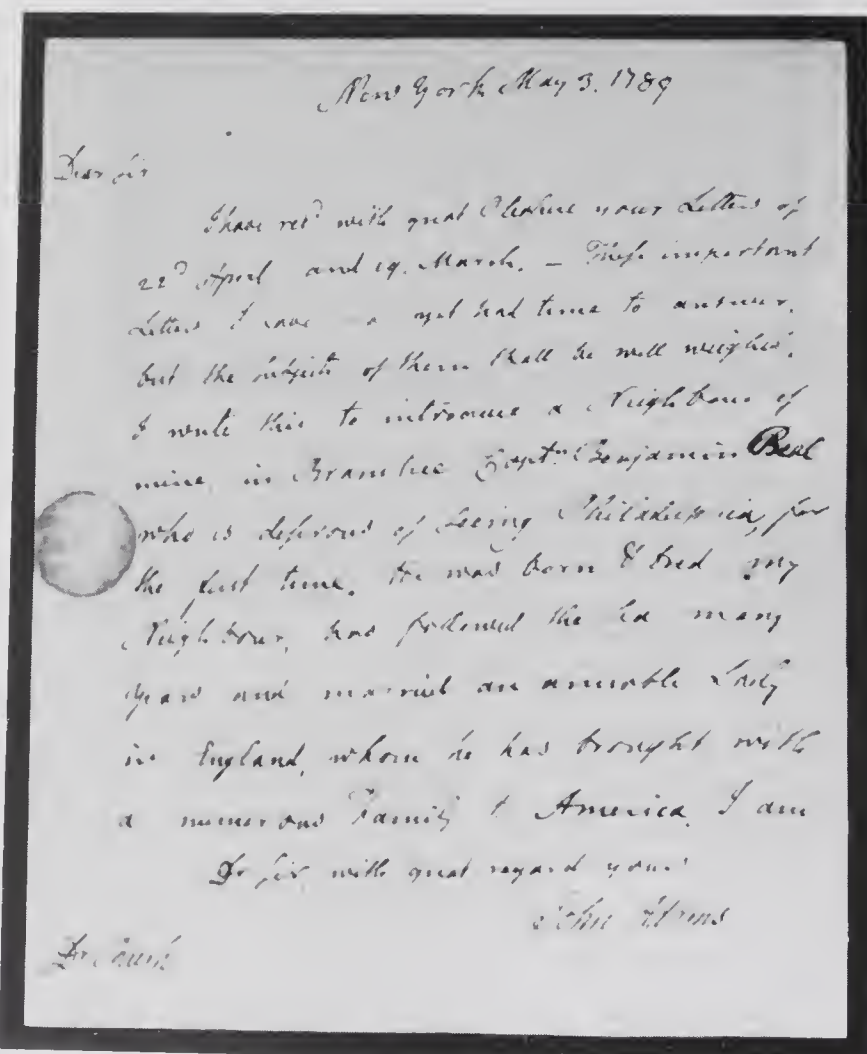 New York May 3. 1789
Dear Sir
I have recd with great Pleasure your Letters of
22d April and 19. March. — These important
Letters I have yet had time to answer,
but the subjects of them shall be well weighed.
I write this to introduce a Neighbour of
mine, in Braintree Captn Benjamin Beal
who is desirous of seeing Philadelphia, for
the first time. He was born & bred my
Neighbour, has followed the Sea many
years and married an amiable Lady
in England, whom he has brought with
a numerous Family to America. I am
Dr Sir, with great regard yours
John Adams
Dr Rush